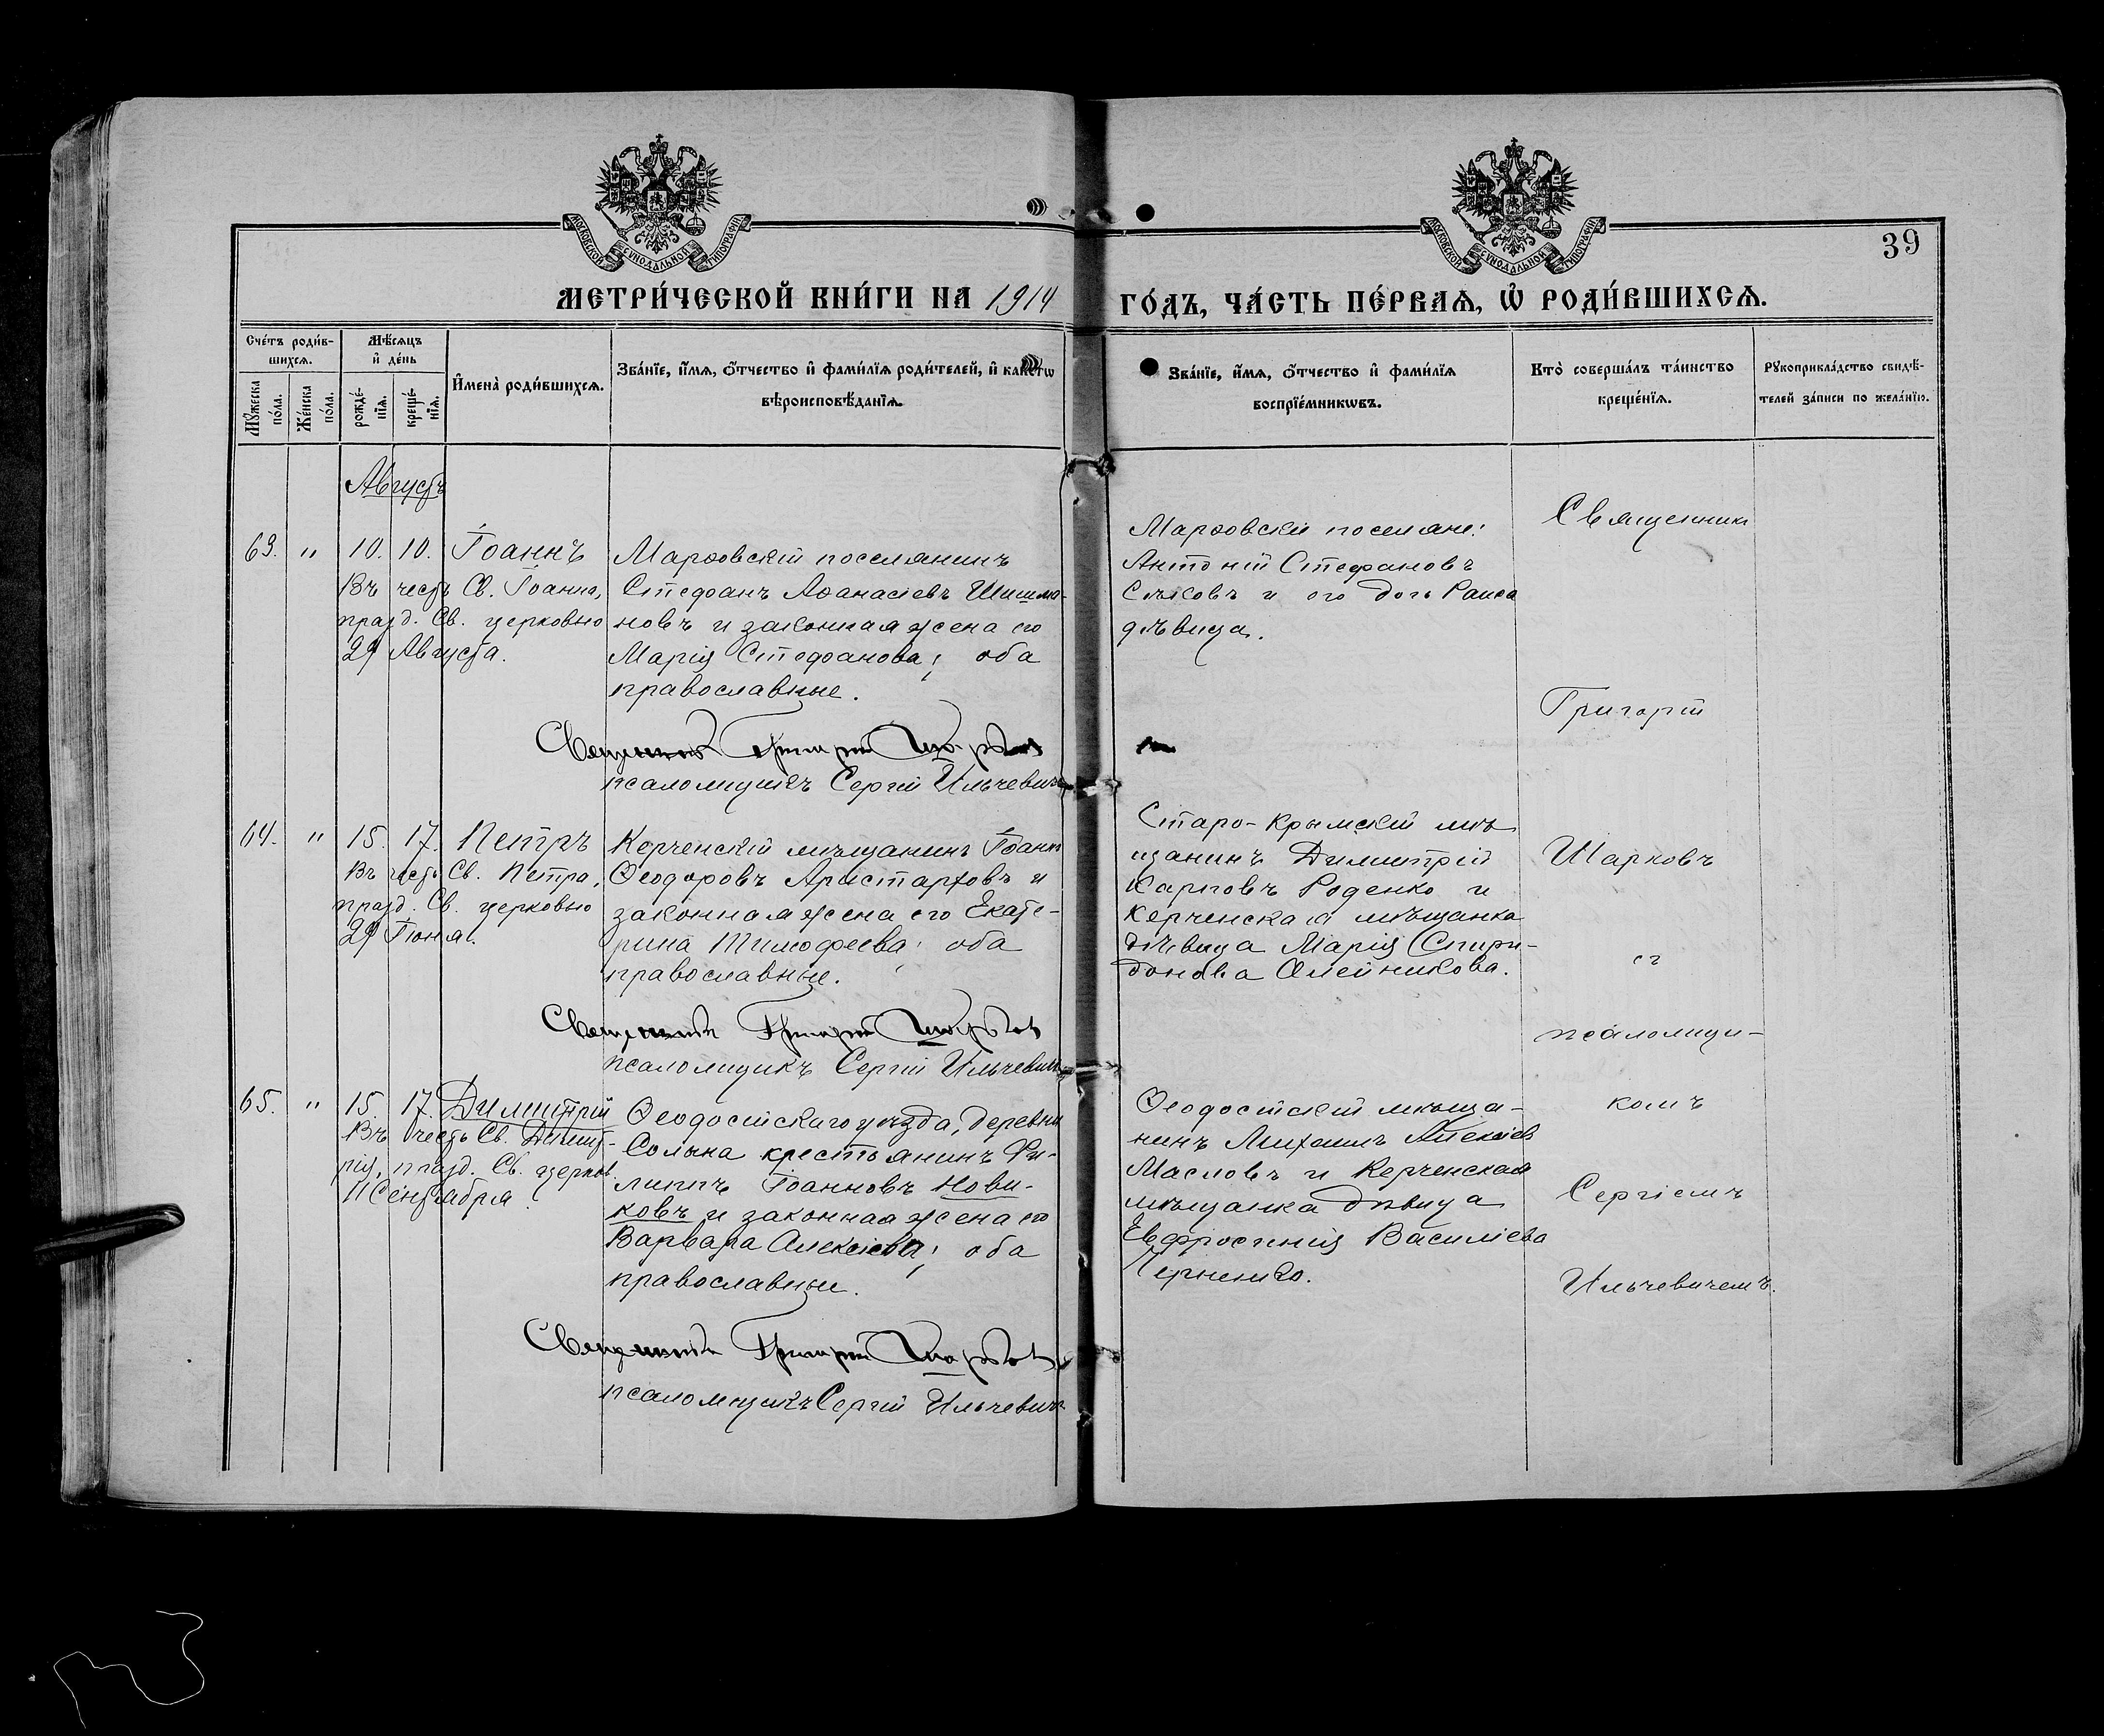 МОСКОВСКОЙ СѴНОДАЛЬНОЙ ТИПОГРАФІИ
МОСКОВСКОЙ СѴНОДАЛЬНОЙ ТИПОГРАФІИ
39
МЕТРИ́ЧЕСКОЙ КНИ́ГИ НА 1914
ГО́ДЪ, ЧА́СТЬ ПЕ́РВАѦ, Ѡ҆ РОДИ́ВШИХСѦ.
Сче́тъ роди́в-
шихсѧ.
Мꙋ́жеска
по́ла.
Же́нска
по́ла.
Мѣ́сѧцъ
и҆ де́нь
рожде́-
нїѧ.
креще́-
нїѧ.
И҆мена̀ роди́вшихсѧ.
Зва́нїе, и҆́мѧ, ѻ҆́тчество и҆ фами́лїѧ роди́телей, и҆ како́гѡ
вѣроисповѣ́данїѧ.
Зва́нїе, и҆́мѧ, ѻ҆́тчество и҆ фами́лїѧ
воспрїе́мникѡвъ.
Кто̀ соверша́лъ та́инство
креще́нїѧ.
Рꙋкоприкла́дство свидѣ́-
телей за́писи по жела́нїю.
Августъ
63. " 10. 10. Іоаннъ
Въ честь Св. Іоанна,
празд. Св. церковью
29 Августа.
Марѳовскій поселянинъ
Стефанъ Аѳанасіевъ Шишма-
новъ и законная жена его
Марія Стефанова; оба
православные.
Священникъ Григорій Шарковъ
псаломщикъ Сергій Ильчевичъ
Марѳовскіе поселяне:
Антоній Стефановъ
и его дочь Раиса
дѣвица.
64. " 15. 17. Петръ
Въ честь Св. Петра,
празд. Св. церковью
29 Іюня.
Керченскій мѣщанинъ Іоаннъ
Ѳеодоровъ Аристарховъ и
законная жена его Екате-
рина Тимофеева; оба
православные.
Священникъ Григорій Шарковъ
псаломщикъ Сергій Ильчевичъ
Старо-Крымскій мѣ
щанинъ Димитрій
Карповъ Роденко и
Керченская мѣщанка
дѣвица Марія Спири-
донова Олейникова.
65. " 15. 17. Димитрій
Въ честь Св. Димит-
рія, празд. Св. церков.
11 Сентября.
Ѳеодосійскаго уѣзда, деревни
крестьянинъ Фи-
липпъ Іоанновъ Нови-
ковъ и законная жена его
Варвара Алексіева; оба
православные.
Священникъ Григорій Шарковъ
псаломщикъ Сергій Ильчевичъ
Ѳеодосійскій мѣща-
нинъ Михаилъ Алексіев
Масловъ и Керченская
мѣщанка дѣвица
Евфросинія Василіева
Черненко.
Священник
Григорій
Шарковъ
съ
псаломщи-
комъ
Сергіемъ
Ильчевичемъ.